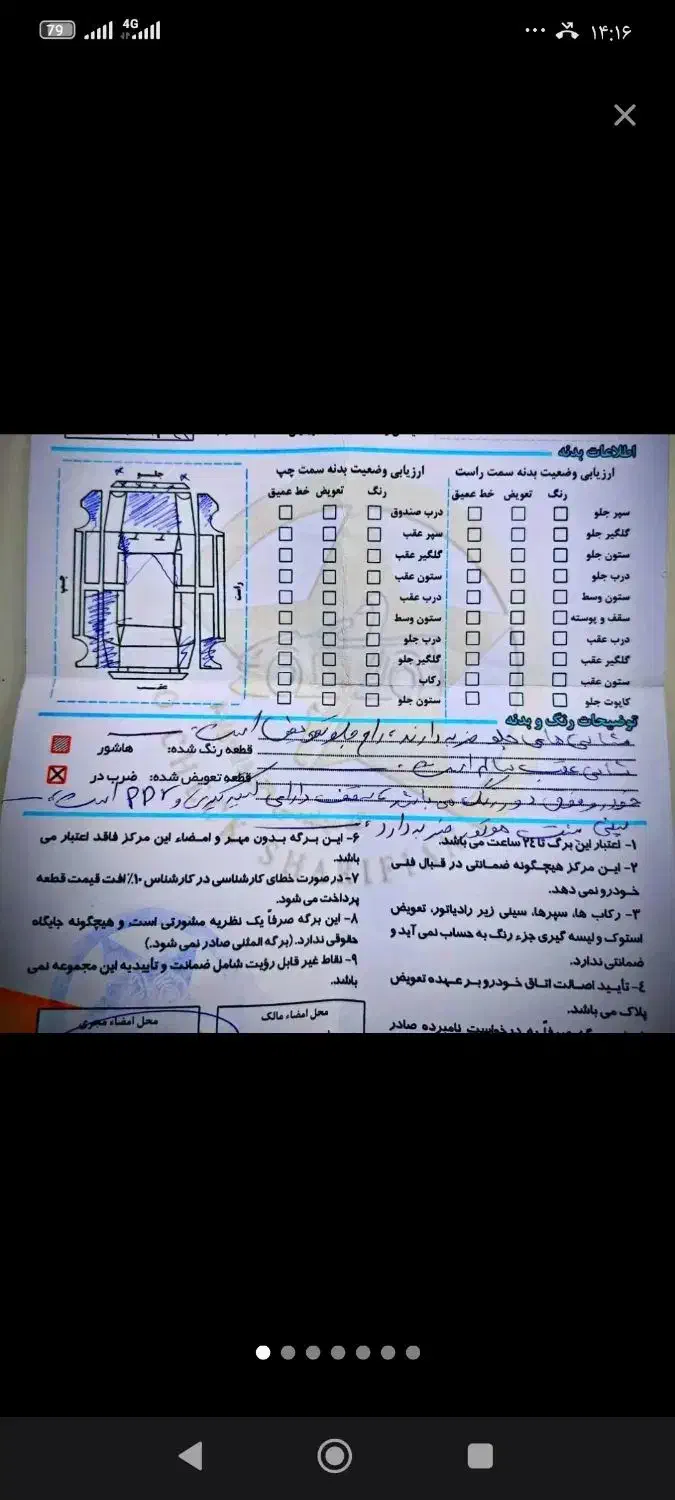 79
4G
۱۴:۱۶
اطلاعات بدنه
ارزیابی وضعیت بدنه سمت راست
رنگ تعویض خط عمیق
سپر جلو
گلگیر جلو
ستون جلو
درب جلو
ستون وسط
سقف و پوسته
درب عقب
گلگیر عقب
ستون عقب
کاپوت جلو
ارزیابی وضعیت بدنه سمت چپ
رنگ تعویض خط عمیق
درب صندوق
سپر عقب
گلگیر عقب
ستون عقب
درب عقب
ستون وسط
درب جلو
گلگیر جلو
رکاب
ستون جلو
جلو
راست
چپ
عقب
توضیحات رنگ و بدنه
شاسی های جلو ضربه دارند، رام جلو تعویض است
شاسی عقب سالم است
خودرو فوق دور رنگ می باشد، سقف دارای لیسه گیری و PDR است،
سینی پشت موتور ضربه دارد،
قطعه رنگ شده: هاشور
قطعه تعویض شده: ضرب در
۱- اعتبار این برگ تا ۲٤ ساعت می باشد.
۲- این مرکز هیچگونه ضمانتی در قبال فنی
خودرو نمی دهد.
۳- رکاب ها، سپرها، سینی زیر رادیاتور، تعویض
استوک و لیسه گیری جزء رنگ به حساب نمی آید و
ضمانتی ندارد.
٤- تأیید اصالت اتاق خودرو بر عهده تعویض
پلاک می باشد.
درخواست نامبرده صادر
۶- این برگه بدون مهر و امضاء این مرکز فاقد اعتبار می
باشد.
۷- در صورت خطای کارشناسی در کارشناس ۱۰٪ افت قیمت قطعه
پرداخت می شود.
۸- این برگه صرفاً یک نظریه مشورتی است و هیچگونه جایگاه
حقوقی ندارد. (برگه المثنی صادر نمی شود.)
۹- نقاط غیر قابل رؤیت شامل ضمانت و تأییدیه این مجموعه نمی
باشد.
محل امضاء مالک
محل امضاء مجری